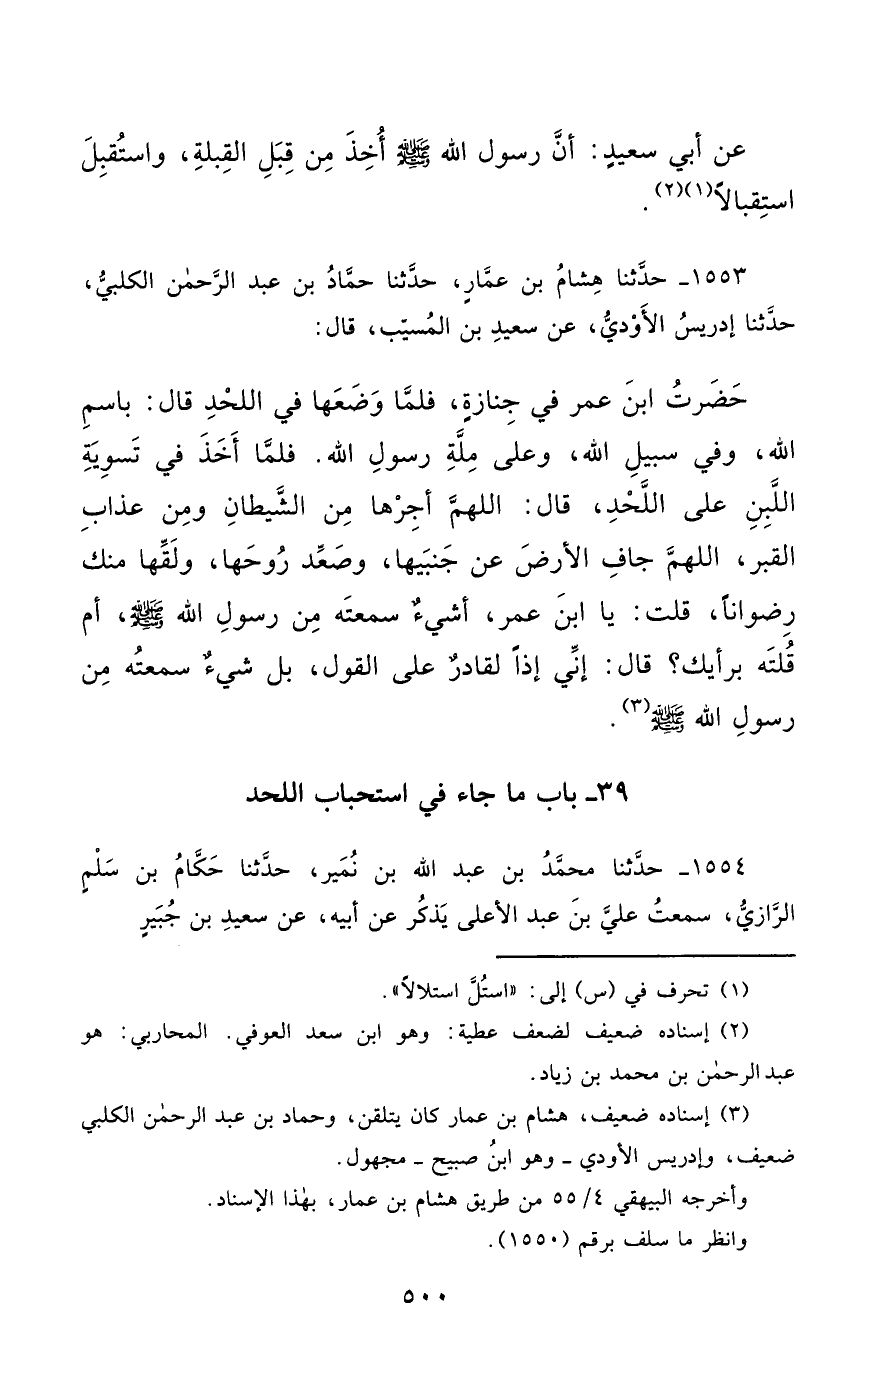 عن أبي سعيدٍ: أنَّ رسول الله ﷺ أُخِذَ مِن قِبَلِ القِبلةِ، واستُقبِلَ
استِقبالاً(١)(٢).
١٥٥٣ـ حدَّثنا هِشامُ بن عمَّارٍ، حدَّثنا حمَّادُ بن عبد الرَّحمٰن الكلبيُّ،
حدَّثنا إدريسُ الأَوْديُّ، عن سعيدِ بن المُسيّب، قال:
حَضَرتُ ابنَ عمر في جِنازةٍ، فلمَّا وَضَعَها في اللحْدِ قال: باسمِ
الله، وفي سبيلِ الله، وعلى مِلَّةِ رسولِ الله. فلمَّا أَخَذَ في تَسويَةِ
اللَّبِنِ على اللَّحْدِ، قال: اللهمَّ أجِرْها مِن الشَّيطانِ ومِن عذابِ
القبر، اللهمَّ جافِ الأرضَ عن جَنبَيها، وصَعِّد رُوحَها، ولَقِّها منك
رِضواناً، قلت: يا ابنَ عمر، أشيءٌ سمعتَه مِن رسولِ الله ﷺ، أم
قُلتَه برأيك؟ قال: إنِّي إذاً لقادرٌ على القول، بل شيءٌ سمعتُه مِن
رسولِ الله ﷺ(٣).
٣٩ـ باب ما جاء في استحباب اللحد
١٥٥٤ـ حدَّثنا محمَّدُ بن عبد الله بن نُمَير، حدَّثنا حَكَّامُ بن سَلْمٍ
الرَّازيُّ، سمعتُ عليَّ بنَ عبد الأعلى يَذكُر عن أبيه، عن سعيدِ بن جُبَيرٍ
(١) تحرف في (س) إلى: «استُلَّ استلالاً».
(٢) إسناده ضعيف لضعف عطية: وهو ابن سعد العوفي. المحاربي: هو
عبد الرحمٰن بن محمد بن زياد.
(٣) إسناده ضعيف، هشام بن عمار كان يتلقن، وحماد بن عبد الرحمٰن الكلبي
ضعيف، وإدريس الأودي ـ وهو ابنُ صبيح ـ مجهول.
وأخرجه البيهقي ٤/ ٥٥ من طريق هشام بن عمار، بهٰذا الإسناد.
وانظر ما سلف برقم (١٥٥٠).
٥٠٠